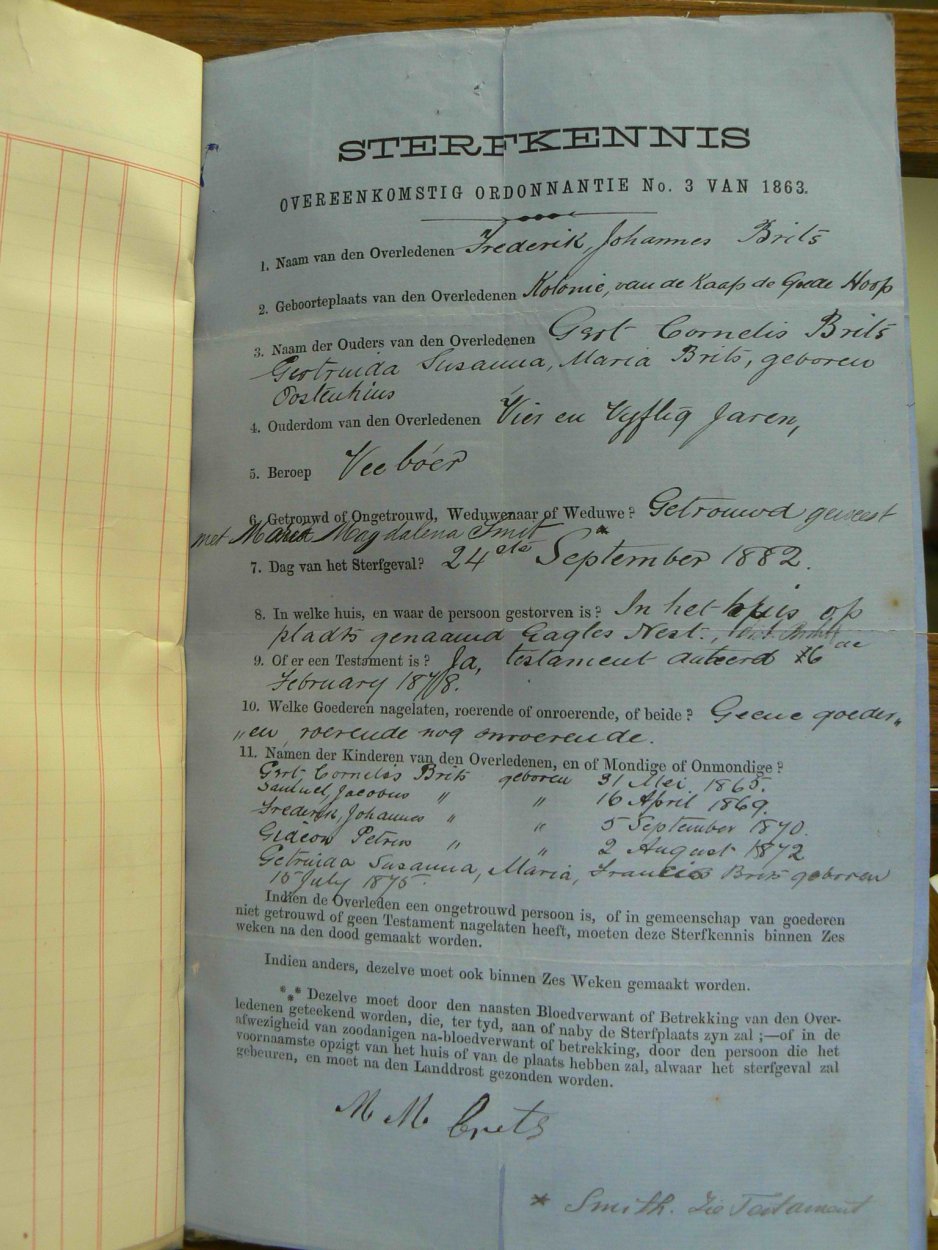 STERFKENNIS
OVEREENKOMSTIG ORDONNANTIE No. 3 VAN 1863.
1. Naam van den Overledenen Frederik, Johannes Brits
2. Geboorteplaats van den Overledenen Kolonie, van de Kaap de Goede Hoop
3. Naam der Ouders van den Overledenen Gert Cornelis Brits
Gertruida Susanna, Maria Brits, geboren
4. Ouderdom van den Overledenen Vier en Vyftig Jaren,
5. Beroep Veeboer
6. Getrouwd of Ongetrouwd, Weduwenaar of Weduwe? Getrouwd geweest
met Maria Magdalena Smit *
7. Dag van het Sterfgeval? 24ste September 1882.
8. In welke huis, en waar de persoon gestorven is? In het huis op
plaats genaamd Eagles Nest.,
9. Of er een Testament is? Ja, testament dateerd
February 1878.
10. Welke Goederen nagelaten, roerende of onroerende, of beide? Geene goeder„
„en, roerende nog onroerende.
11. Namen der Kinderen van den Overledenen, en of Mondige of Onmondige?
Gert, Cornelis Brits geboren 31 Mei 1865.
Samuel, Jacobus „ „ 16 April 1869.
Frederik, Johannes „ „ 5 September 1870.
Gideon Petrus „ „ 2 August 1872
Getruida Susanna, Maria, Brits geboren
15 July 1875.
Indien de Overleden een ongetrouwd persoon is, of in gemeenschap van goederen
niet getrouwd of geen Testament nagelaten heeft, moeten deze Sterfkennis binnen Zes
weken na den dood gemaakt worden.
Indien anders, dezelve moet ook binnen Zes Weken gemaakt worden.
*** Dezelve moet door den naasten Bloedverwant of Betrekking van den Over-
ledenen geteekend worden, die, ter tyd, aan of naby de Sterfplaats zyn zal ;—of in de
afwezigheid van zoodanigen na-bloedverwant of betrekking, door den persoon die het
voornaamste opzigt van het huis of van de plaats hebben zal, alwaar het sterfgeval zal
gebeuren, en moet na den Landdrost gezonden worden.
M M Brets
* Smith. Zie Testament